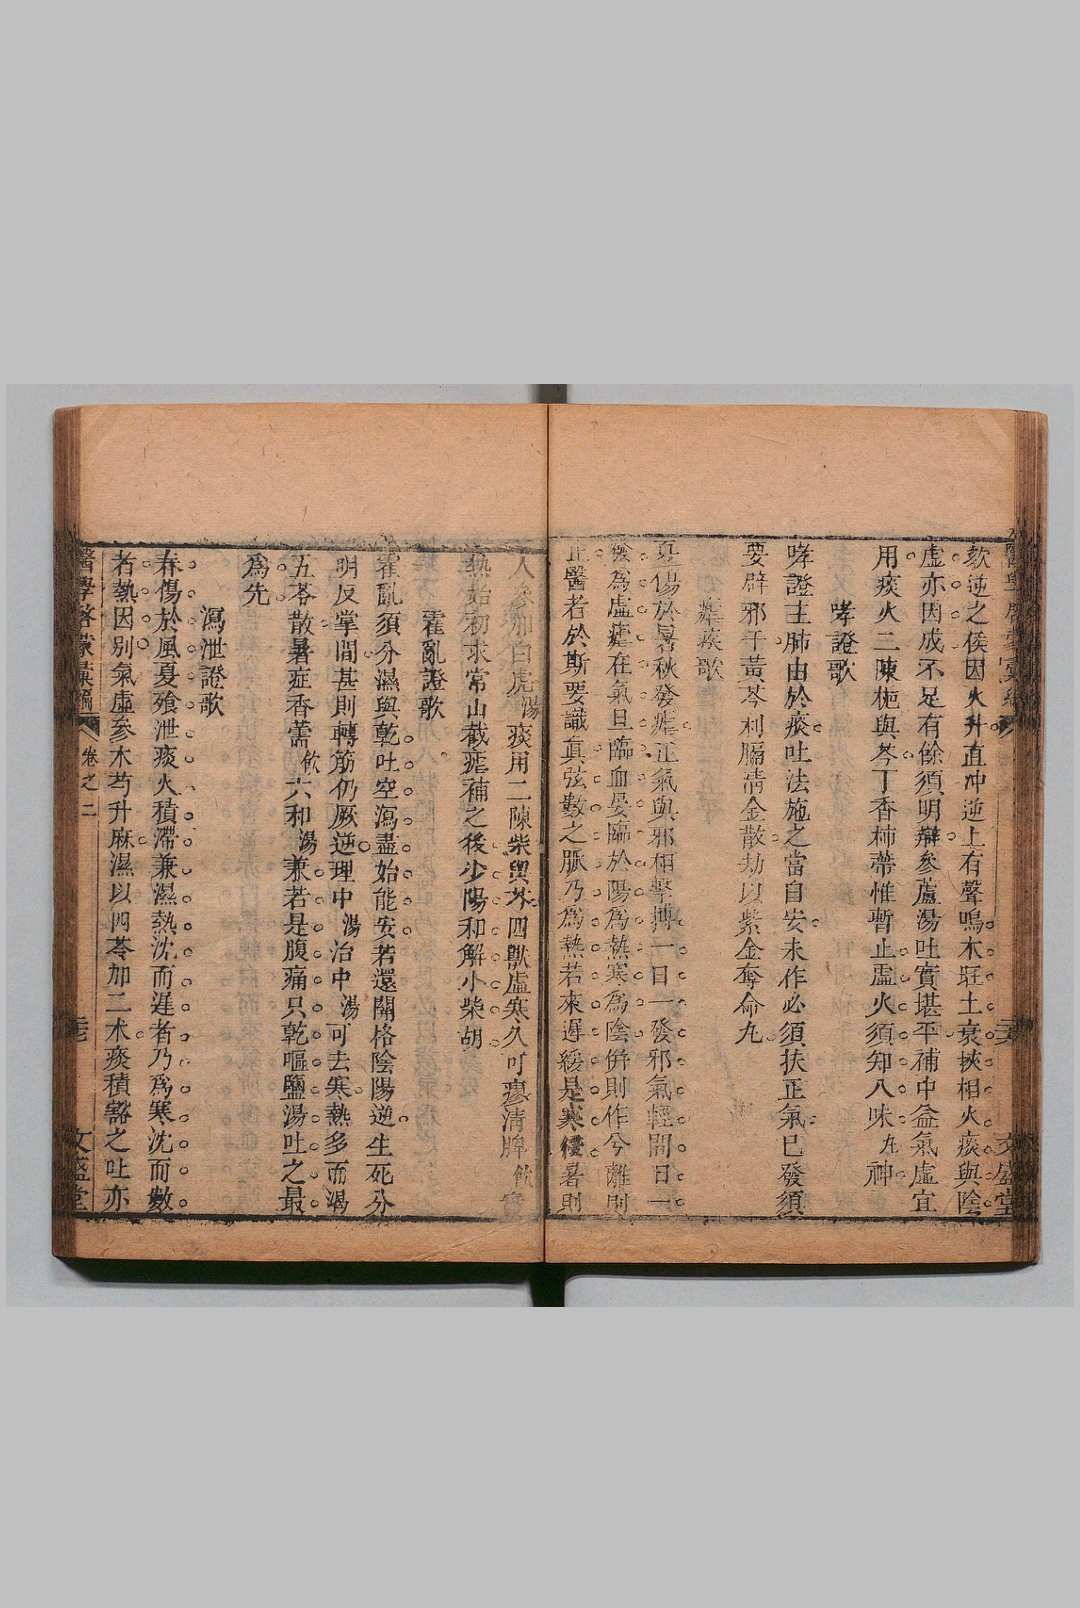 欬逆之候因火升直冲逆上有聲鳴木旺土衰挾相火痰與陰
虛亦因成不足有餘須明辯參蘆湯吐實堪平補中益氣虛宜
用痰火二陳梔與芩丁香柿蒂惟暫止虛火須知八味丸神
哮證歌
哮證主肺由於痰吐法施之當自安未作必須扶正氣已發須
要辟邪干黃芩利膈清金散劫以紫金奪命丸
瘧疾歌
夏傷於暑秋發瘧正氣與邪相擊搏一日一發邪氣輕間日一
發為虛瘧在氣旦臨血晏臨於陽為熱寒為陰併則作兮離則
止醫者於斯要識真弦數之脈乃為熱若來遲緩是寒侵暑則
人參加白虎湯痰用二陳柴與芩四獸虛寒久可瘳清脾飲實
熱始初求常山截瘧補之後少陽和解小柴胡
霍亂證歌
霍亂須分濕與乾吐空瀉盡始能安若還關格陰陽逆生死分
明反掌間甚則轉筋仍厥逆理中湯治中湯可去寒熱多而渴
五苓散暑症香薷飲六和湯兼若是腹痛只乾嘔鹽湯吐之最
為先
瀉泄證歌
春傷於風夏飱泄痰火積滯兼濕熱沈而遲者乃為寒沈而數
者熱因別氣虛參朮芍升麻濕以四苓加二朮痰積豁之吐亦
醫學啓蒙彙編
卷之二
文盛堂
文盛堂